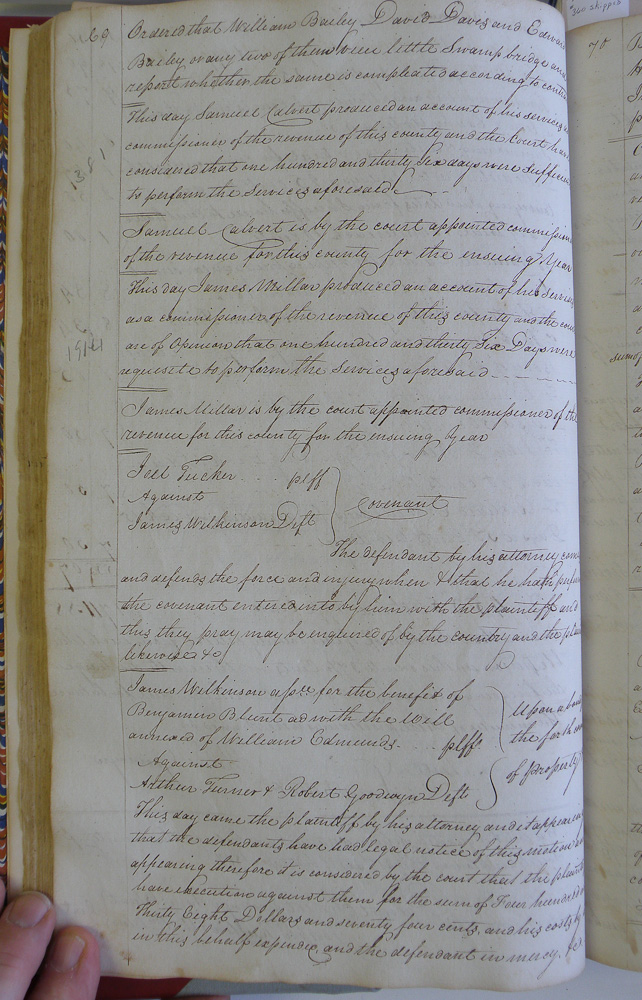 69
Ordered that William Bailey David Daves and Edward
Bailey or any two of them view little Swamp bridge and
report whether the same is compleated according to contr
This day Samuel Calvert produced an account of his services as
commissioner of the revenue of this county and the Court have
considered that one hundred and thirty Six days were sufficien
to perform the Services aforesaid
Samuel Calvert is by the court appointed commission
of the revenue for this county for the insuing Year
This day James Millar produced an account of his Service
as a commissioner of the revenue of this county and the cou
are of Opinion that one hundred and thirty Six Days were
requesite to perform the Services aforesaid
James Millar is by the court appointed commissioner of the
revenue for this county for the insuing Year
Joel Tucker plff
Against
James Wilkinson Deft
Covenant
The defendant by his attorney com
and defends the force and injury when & that he hath perfor
the covenant entered into by him with the plaintiff and
this they pray may be inquired of by the country and the plai
likewise &c
James Wilkinson assee for the benefit of
Benjamen Blunt ad with the Will
annexed of William Edmunds plff
Against
Arthur Turner & Robert Goodwyn Defts
Upon a bond
the forthcom
of property
This day came the plaintiff by his attorney and it appearing
that the defendants have had legal notice of this motion
appearing therefore it is considered by the court that the plaint
have execution against them for the sum of Four hundred
Thirty Eight Dollars and seventy four cents, and his costs by
in this behalf expended and the defendant in mercy. &c
70